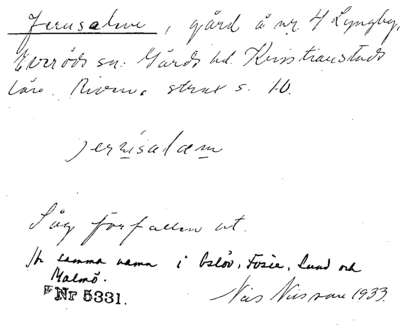 Jerusalem, gård å nr 4 Lyngby,
Everöds sn. Gärds hd. Kristianstads
län. s. 10.
jerusalæm
Såg förfallen ut.
samma namn i Oslöv, Fosie, Lund och
Malmö.
Nr 5331.
Nils Nilsson 1933.